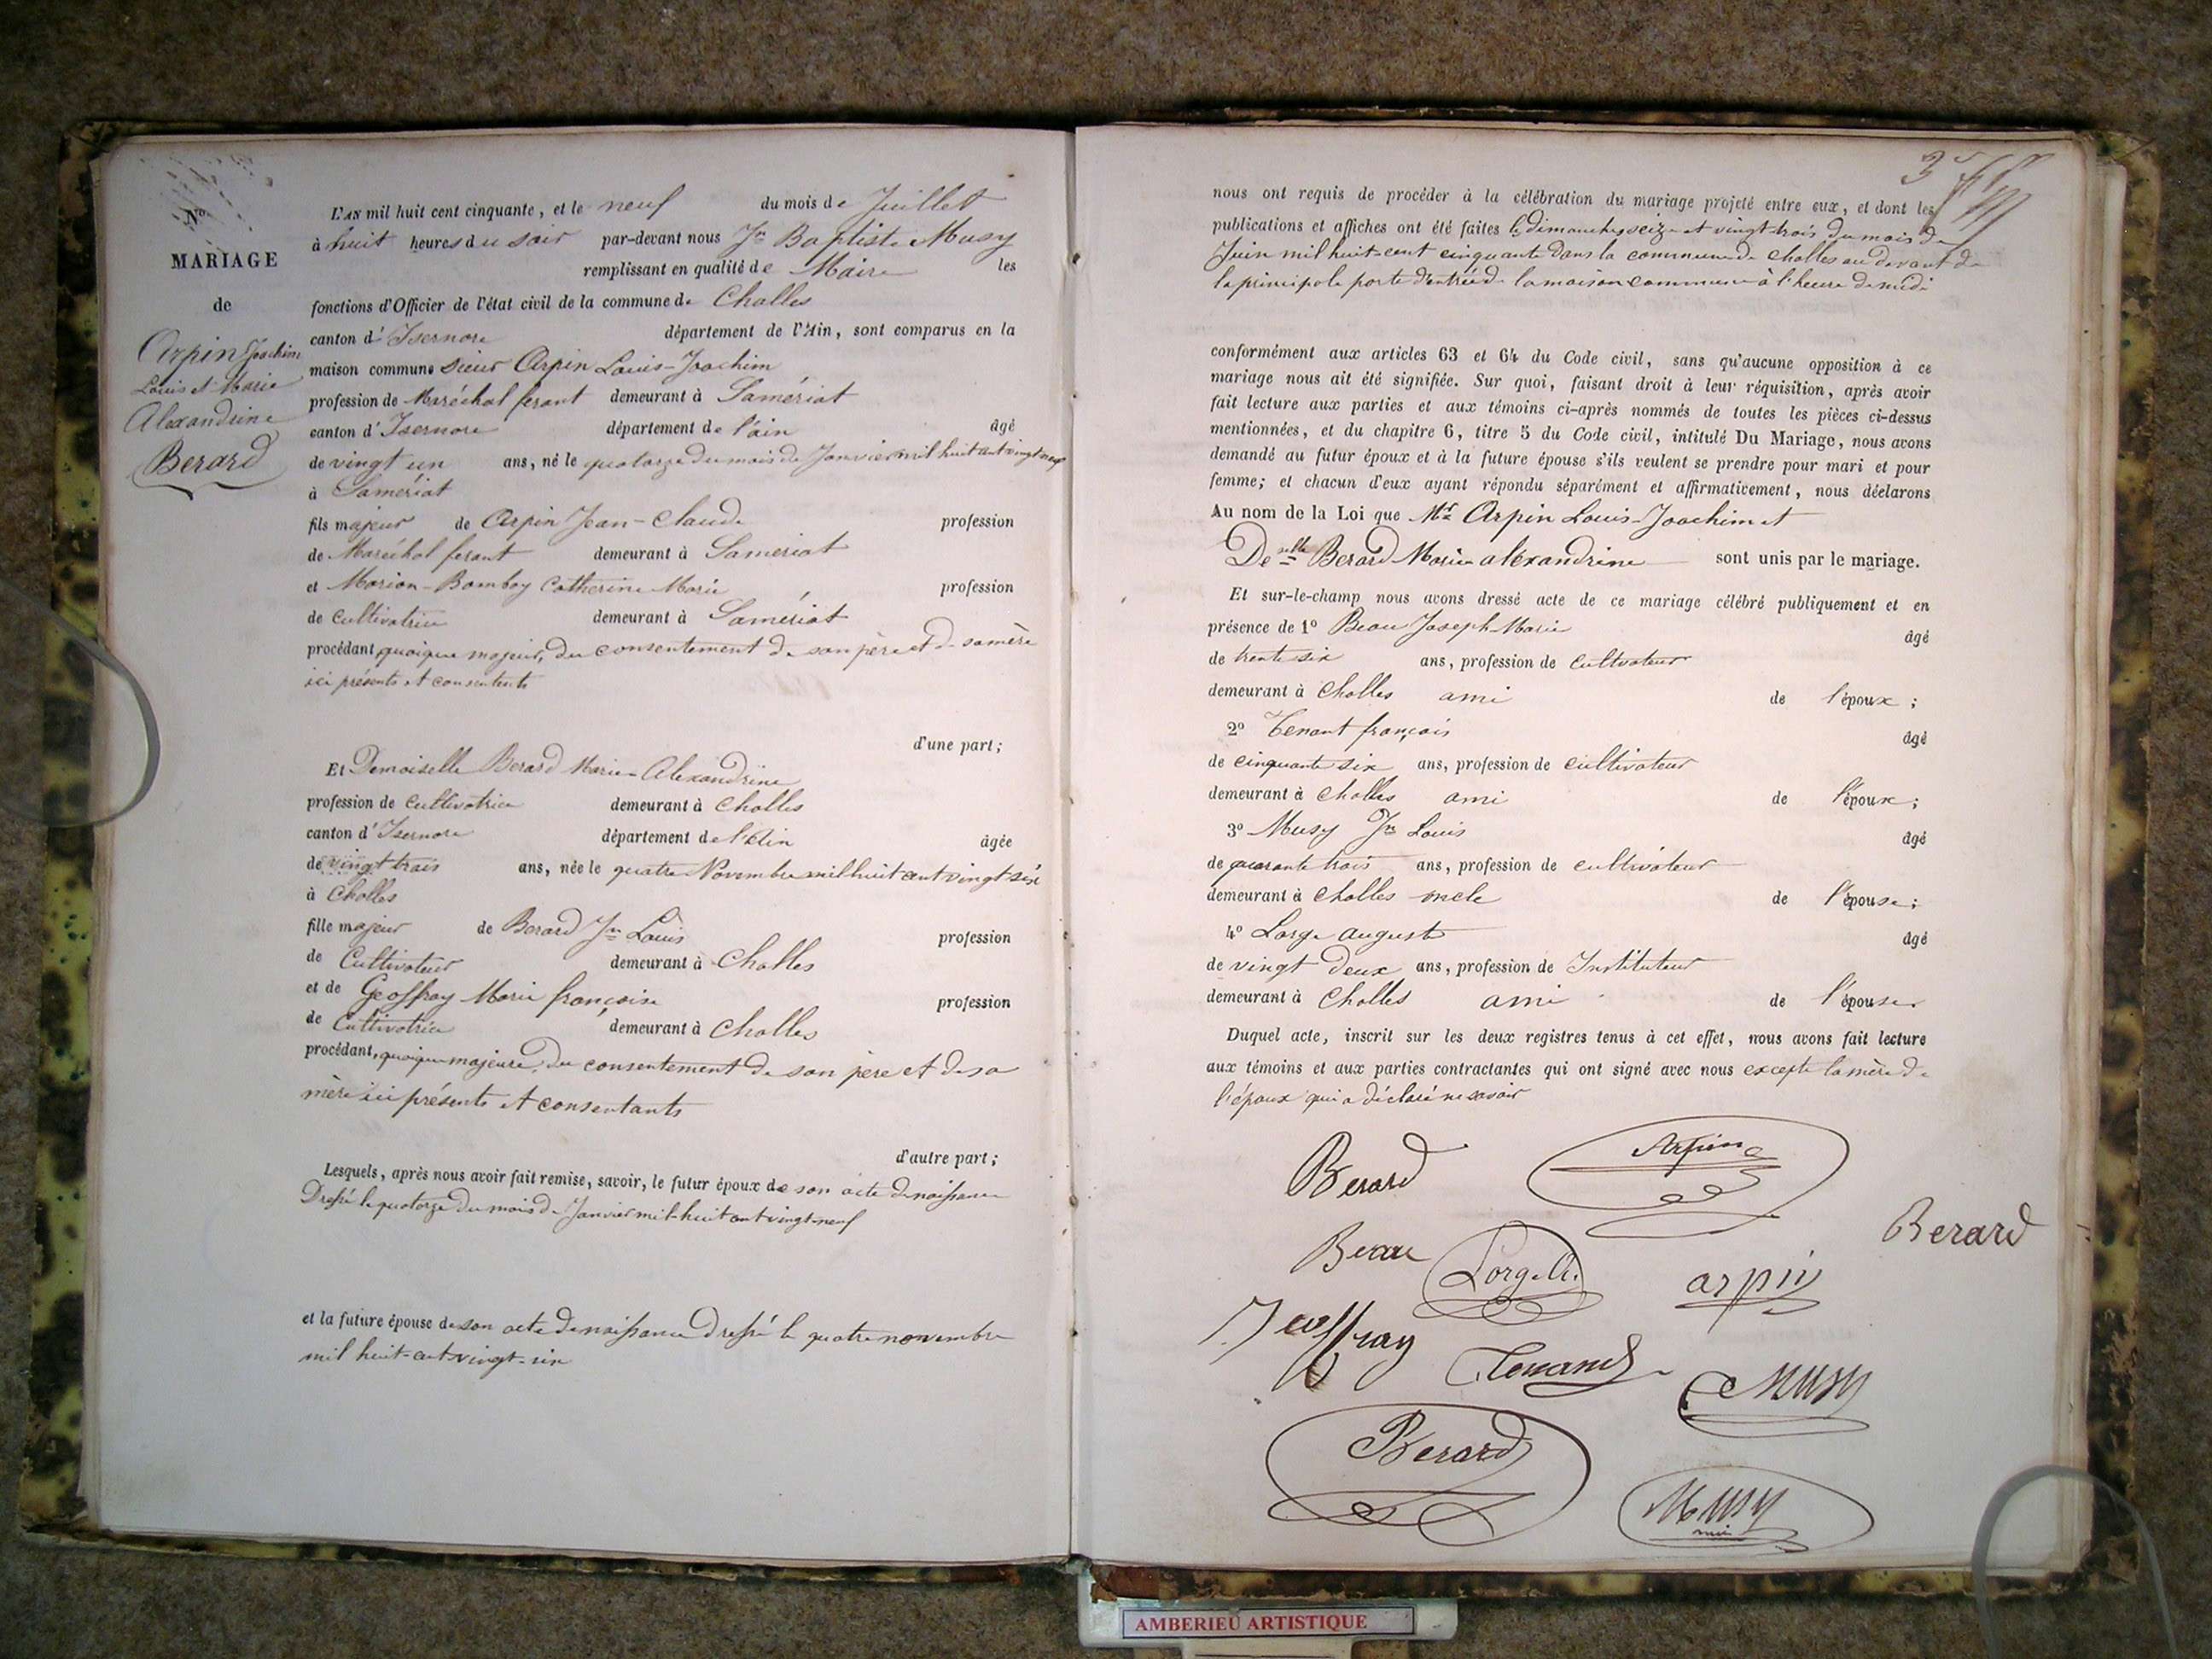 Nº
MARIAGE
de
Arpin Joachim
Louis et Marie
Alexandrine
Berard
L'AN mil huit cent cinquante, et le neuf du mois de Juillet
à huit heures du soir par-devant nous Jn Baptiste Musy
remplissant en qualité de Maire les
fonctions d'Officier de l'état civil de la commune de Challes
canton d'Isernore département de l'Ain, sont comparus en la
maison commune sieur Arpin Louis-Joachim
profession de Maréchal ferant demeurant à Samériat
canton d'Isernore département de l'ain âgé
de vingt un ans, né le quatorze du mois de Janvier mil huit cent vingt neuf
à Samériat
fils majeur de Arpin Jean-Claude profession
de Maréchal ferant demeurant à Samériat
et Marion-Bamboy Catherine Marie profession
de Cultivatrice demeurant à Samériat
procédant, quoique majeur, du consentement de son père et de sa mère
ici présents et consentents
d'une part;
Et Demoiselle Berard Marie-Alexandrine
profession de Cultivatrice demeurant à Challes
canton d'Isernore département de l'Ain âgée
de vingt trois ans, née le quatre Novembre mil huit cent vingt six
à Challes
fille majeur de Berard Jn Louis profession
de Cultivateur demeurant à Challes
et de Geoffray Marie françoise profession
de Cultivatrice demeurant à Challes
procédant, quoique majeure, du consentement de son père et de sa
mère ici présents et consentants
d'autre part;
Lesquels, après nous avoir fait remise, savoir, le futur époux de son acte de naissance
Dressé le quatorze du mois de Janvier mil-huit cent vingt-neuf
et la future épouse de son acte de naissance Dressé le quatre novembre
mil huit-cent vingt-six
3
nous ont requis de procéder à la célébration du mariage projeté entre eux, et dont les
publications et affiches ont été faites les dimanches seize et vingt trois du mois de
Juin mil huit-cent cinquante dans la commune de Challes au devant de
la principale porte d'entrée de la maison commune à l'heure de midi
conformément aux articles 63 et 64 du Code civil, sans qu'aucune opposition à ce
mariage nous ait été signifiée. Sur quoi, faisant droit à leur réquisition, après avoir
fait lecture aux parties et aux témoins ci-après nommés de toutes les pièces ci-dessus
mentionnées, et du chapitre 6, titre 5 du Code civil, intitulé Du Mariage, nous avons
demandé au futur époux et à la future épouse s'ils veulent se prendre pour mari et pour
femme; et chacun d'eux ayant répondu séparément et affirmativement, nous déclarons
Au nom de la Loi que Mr Arpin Louis-Joachim et
Deselle Berard Marie alexandrine sont unis par le mariage.
Et sur-le-champ nous avons dressé acte de ce mariage célébré publiquement et en
présence de 1º Beau Joseph-Marie âgé
de trente six ans, profession de Cultivateur
demeurant à Challes ami de l'époux;
2º Tenant françois âgé
de cinquante six ans, profession de cultivateur
demeurant à Challes ami de l'époux;
3º Musy Jn Louis âgé
de quarante trois ans, profession de cultivateur
demeurant à Challes oncle de l'épouse;
4º Lorge auguste âgé
de vingt deux ans, profession de Instituteur
demeurant à Challes ami de l'épouse
Duquel acte, inscrit sur les deux registres tenus à cet effet, nous avons fait lecture
aux témoins et aux parties contractantes qui ont signé avec nous excepté la mère de
l'époux qui a déclaré ne savoir
Berard Arpin
Berard
Beau Lorge A. arpin
Jeoffray Tenand Musy
Berard
Musy
AMBERIEU ARTISTIQUE